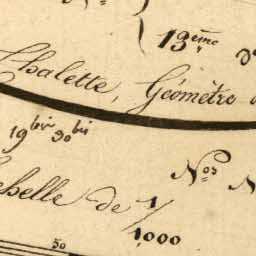 N.º
13.ème
Chalette, Géomètre
19 bis 30 bis
N.os
chelle de 1/1,000
50